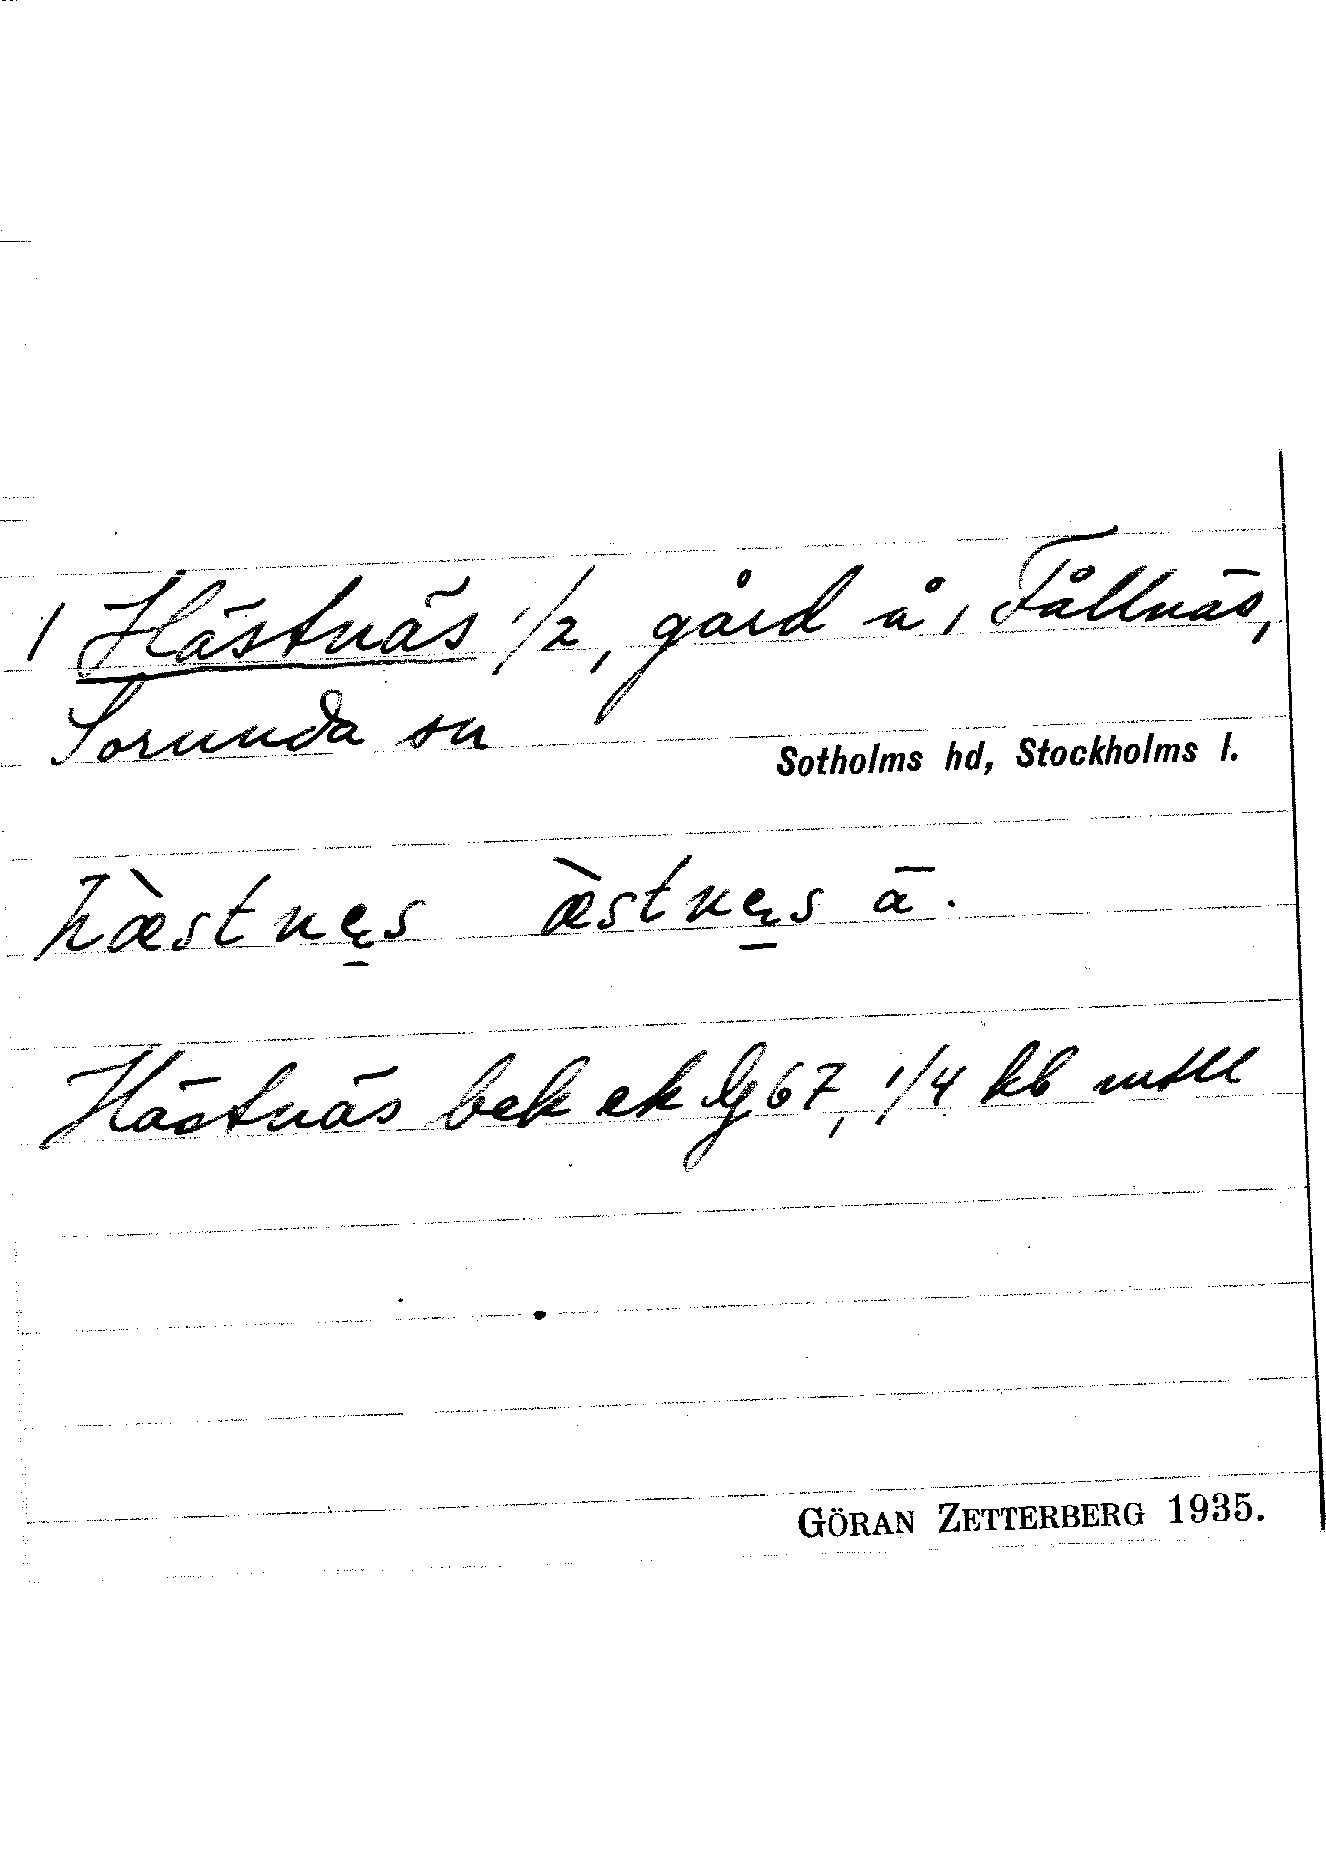 / Hästnäs 1/2, gård å 1 Fållnäs,
Sorunda sn
Sotholms hd, Stockholms l.
hæ̀stnęs æ̀stnęs ā.
Hästnäs bek ek lg 67, 1/4 kb mtll
GÖRAN ZETTERBERG 1935.